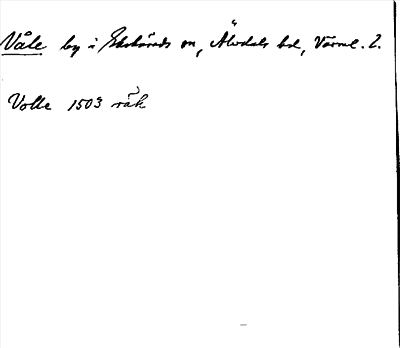 Våle by i Ekshärads sn, Älvdals hd, Värml. l.
Volle 1503 räk